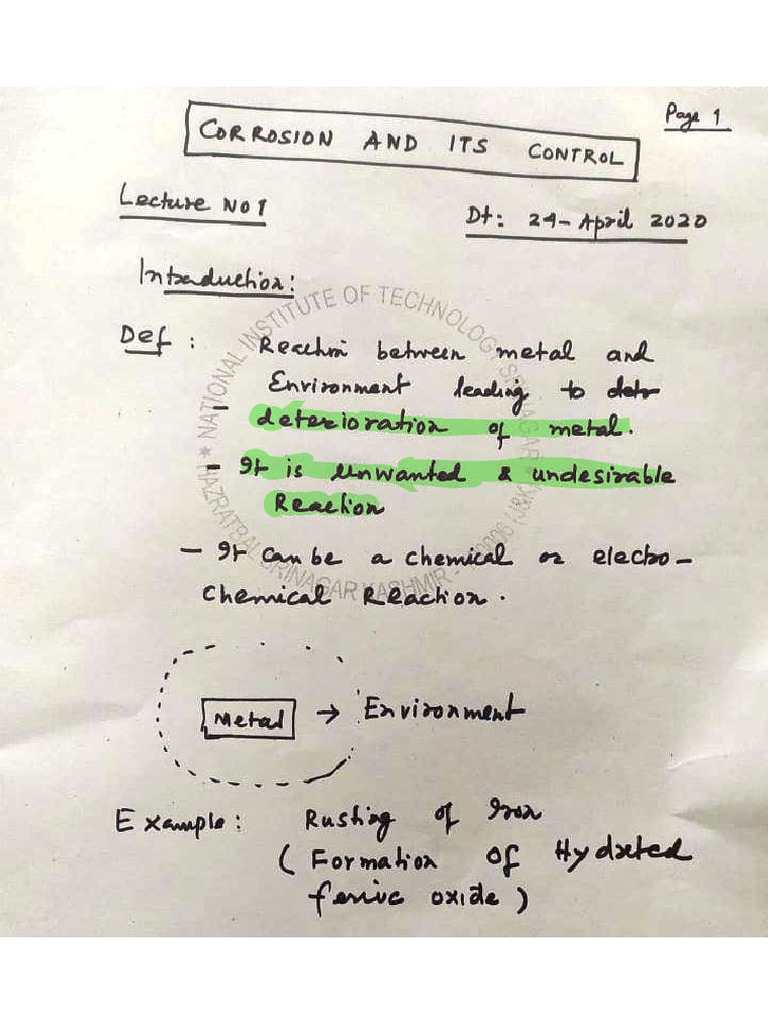 Page 1
CORROSION AND ITS CONTROL
Lecture No 1
Dt: 24-April 2020
Introduction:
Def: Reaction between metal and
Environment leading to detr
- deterioration of metal.
- It is unwanted & undesirable
Reaction
- It can be a chemical or electro-
chemical Reaction.
Metal → Environment
Example: Rusting of Iron
(Formation of Hydrated
ferric oxide)
* NATIONAL INSTITUTE OF TECHNOLOGY, SRINAGAR *
HAZRATBAL SRINAGAR KASHMIR - 190006 (J&K)